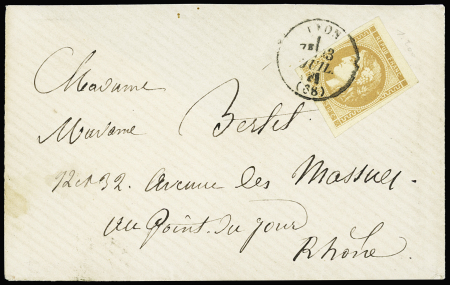 LYON
JUIL.
(68)
Madame
Madame Bertet
12 & 32. Avenue les Massues.
au Point du jour
Rhône.